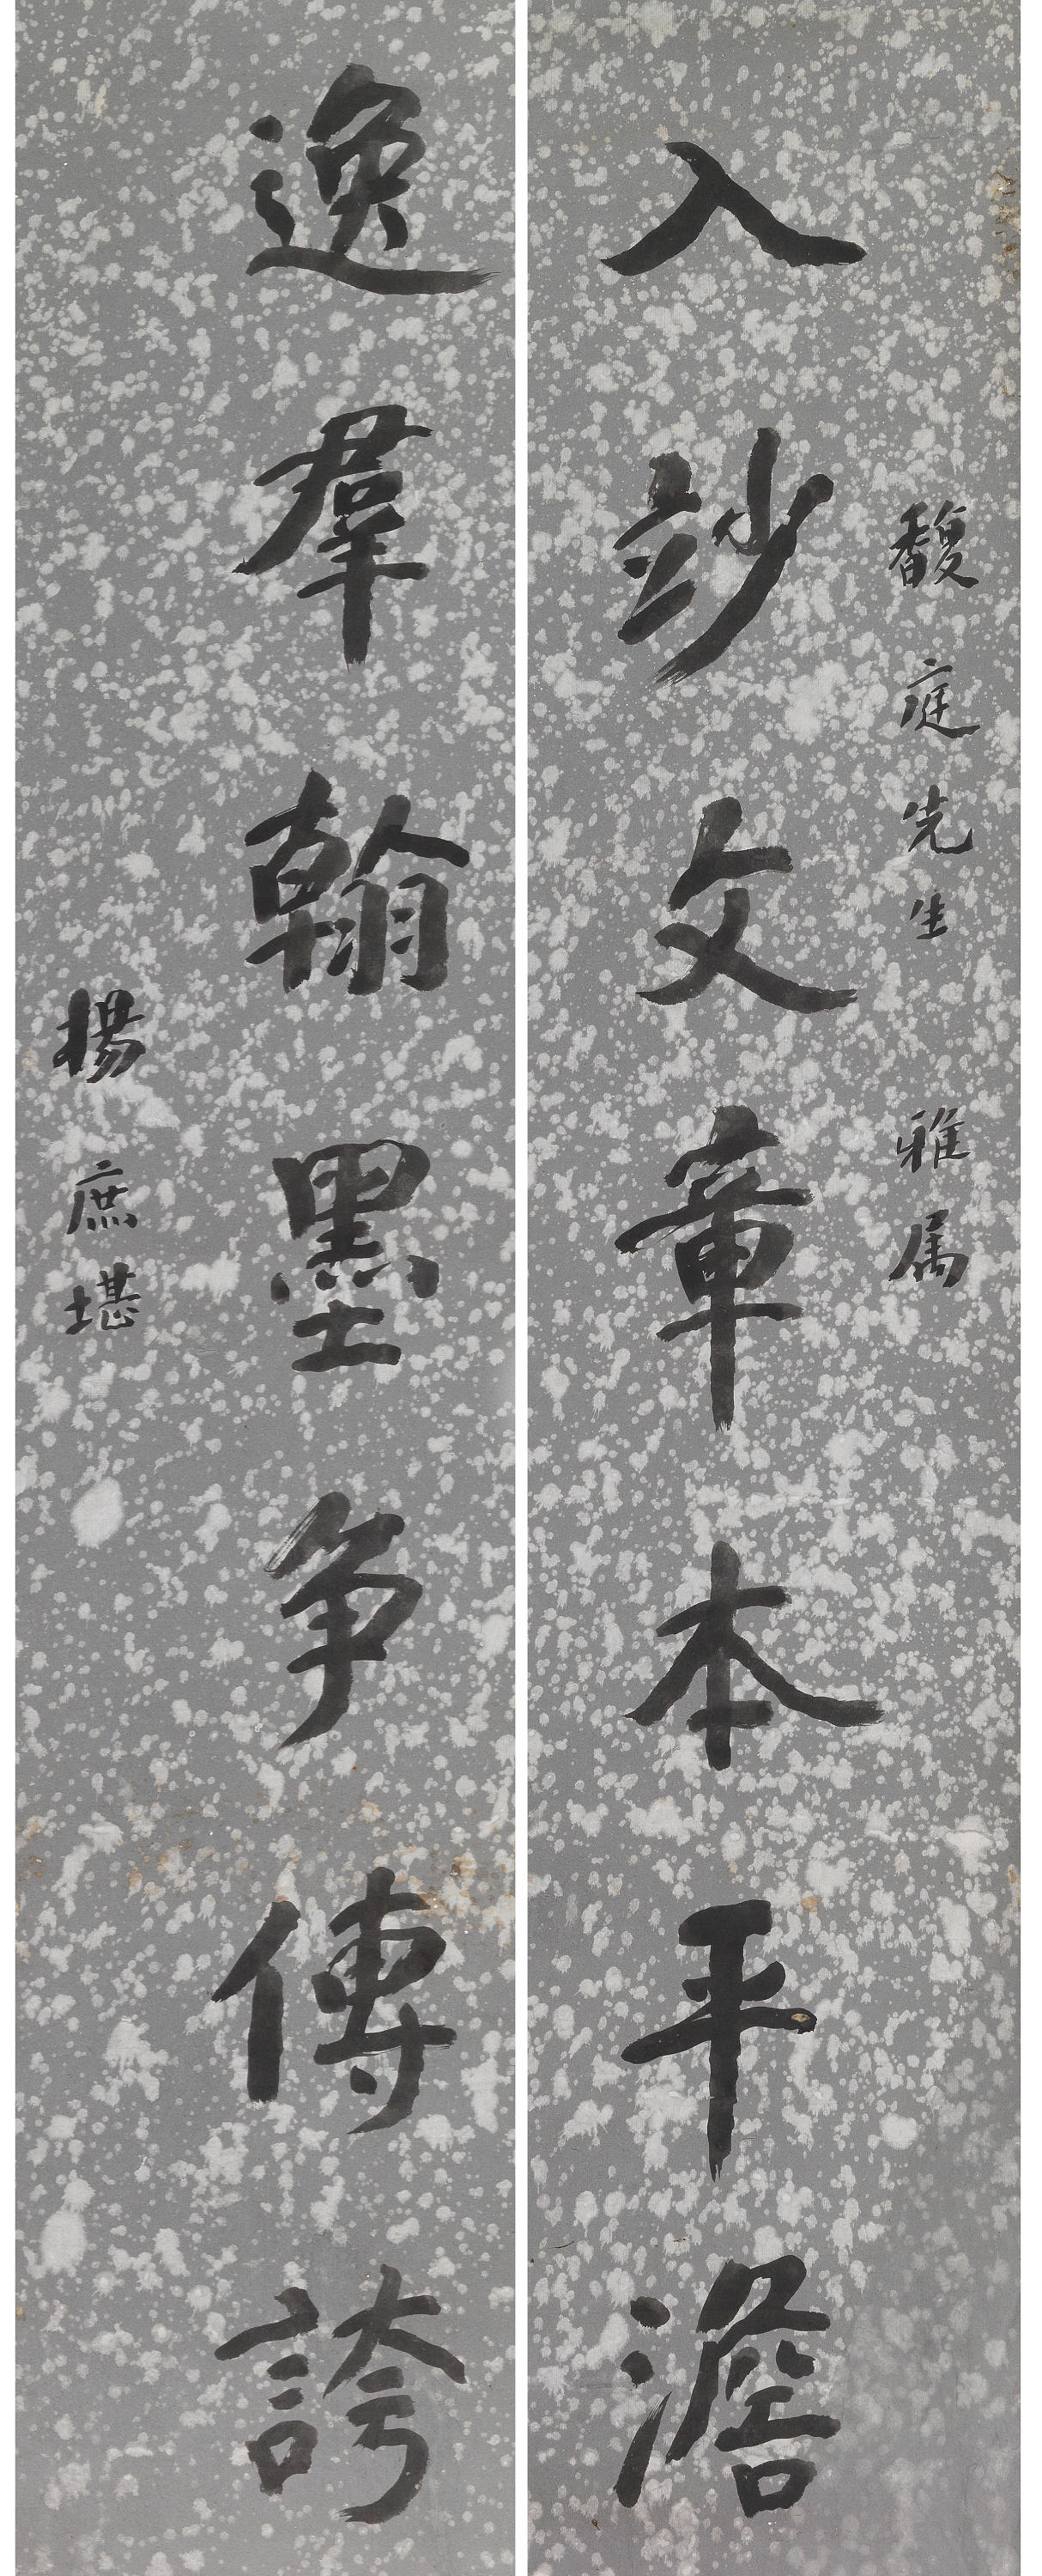 馥庭先生雅属
入竗文章本平澹
逸羣翰墨争傳誇
楊庶堪